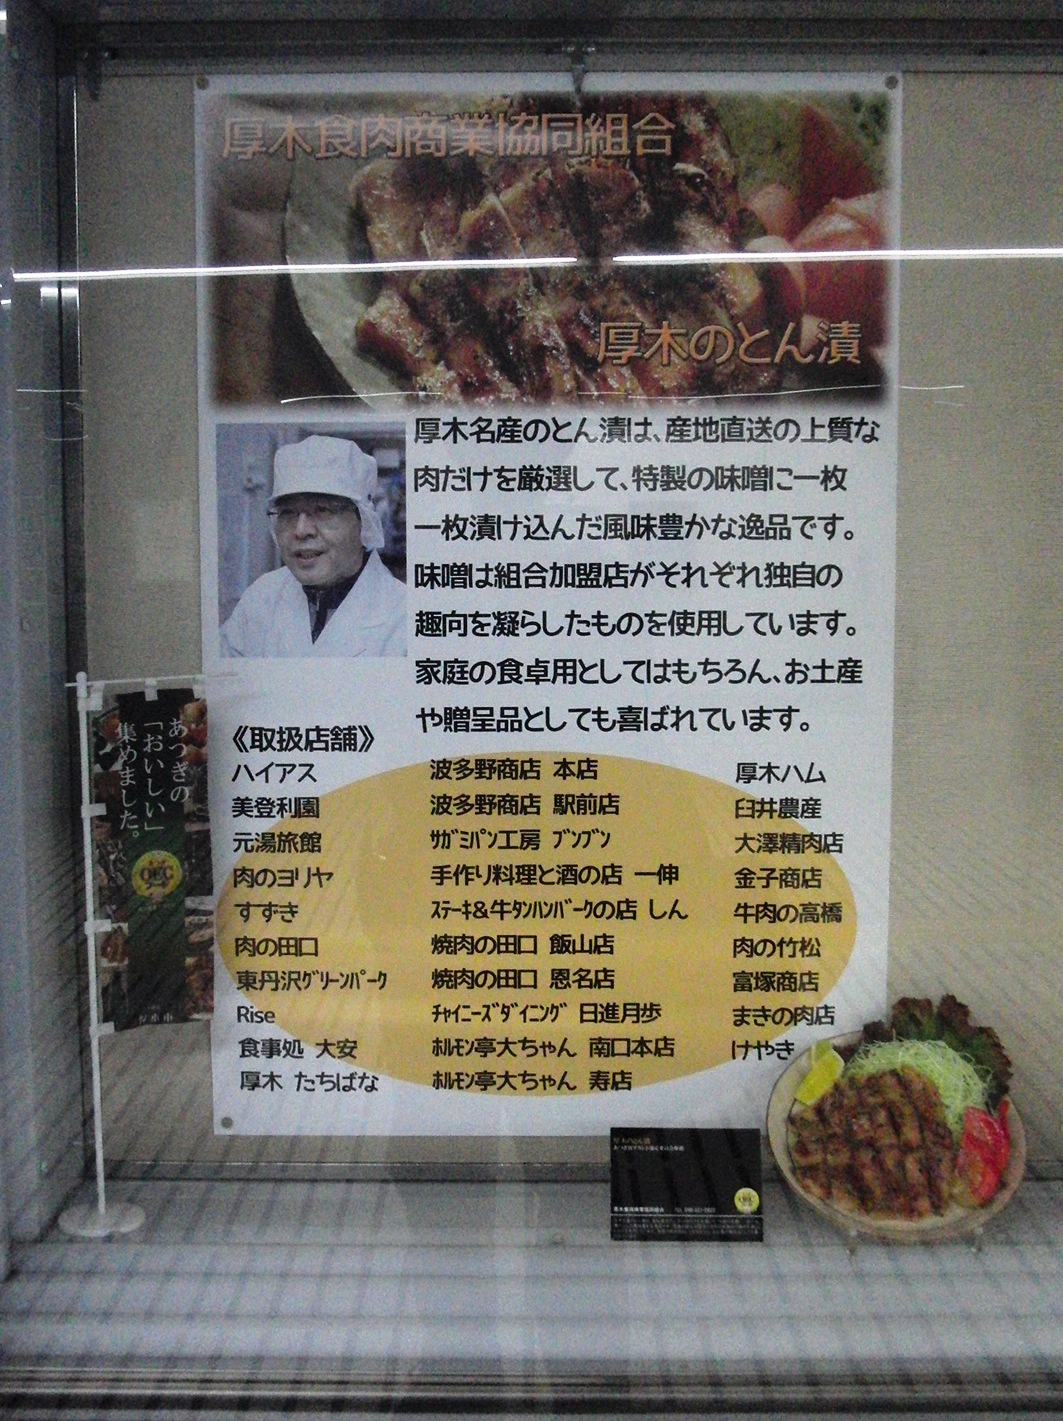 厚木食肉商業協同組合
厚木のとん漬
厚木名産のとん漬は、産地直送の上質な
肉だけを厳選して、特製の味噌に一枚
一枚漬け込んだ風味豊かな逸品です。
味噌は組合加盟店がそれぞれ独自の
趣向を凝らしたものを使用しています。
家庭の食卓用としてはもちろん、お土産
や贈呈品としても喜ばれています。
《取扱店舗》
ハイアス
美登利園
元湯旅館
肉のヨリヤ
すずき
肉の田口
東丹沢ｸﾞﾘｰﾝﾊﾟｰｸ
Rise
食事処 大安
厚木 たちばな
波多野商店 本店
波多野商店 駅前店
ｻｶﾞﾐﾊﾟﾝ工房 ﾌﾞﾝﾌﾞﾝ
手作り料理と酒の店 一伸
ｽﾃｰｷ&牛ﾀﾝﾊﾝﾊﾞｰｸの店 しん
焼肉の田口 飯山店
焼肉の田口 恩名店
ﾁｬｲﾆｰｽﾞﾀﾞｲﾆﾝｸﾞ 日進月歩
ﾎﾙﾓﾝ亭大ちゃん 南口本店
ﾎﾙﾓﾝ亭大ちゃん 寿店
厚木ハム
臼井農産
大澤精肉店
金子商店
牛肉の高橋
肉の竹松
富塚商店
まきの肉店
けやき
あつぎの
「おいしい」
集めました。
OEC
厚木市
厚木のとん漬
厚木食肉商業協同組合